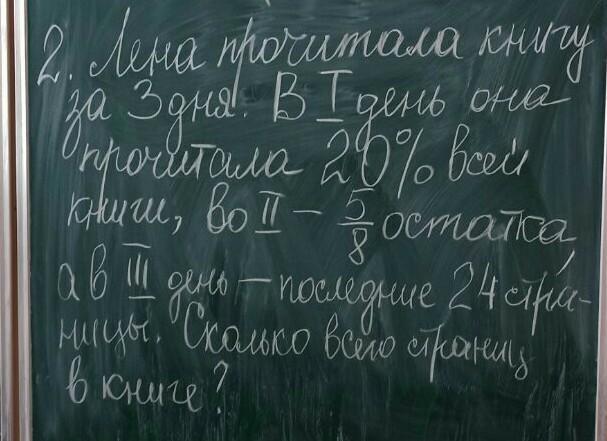 2. Лена прочитала книгу
за 3 дня. В I день она
прочитала 20% всей
книги, во II – 5/8 остатка,
а в III день – последние 24 стра-
ницы. Сколько всего страниц
в книге?